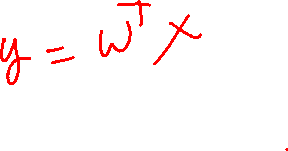 y = w^T x